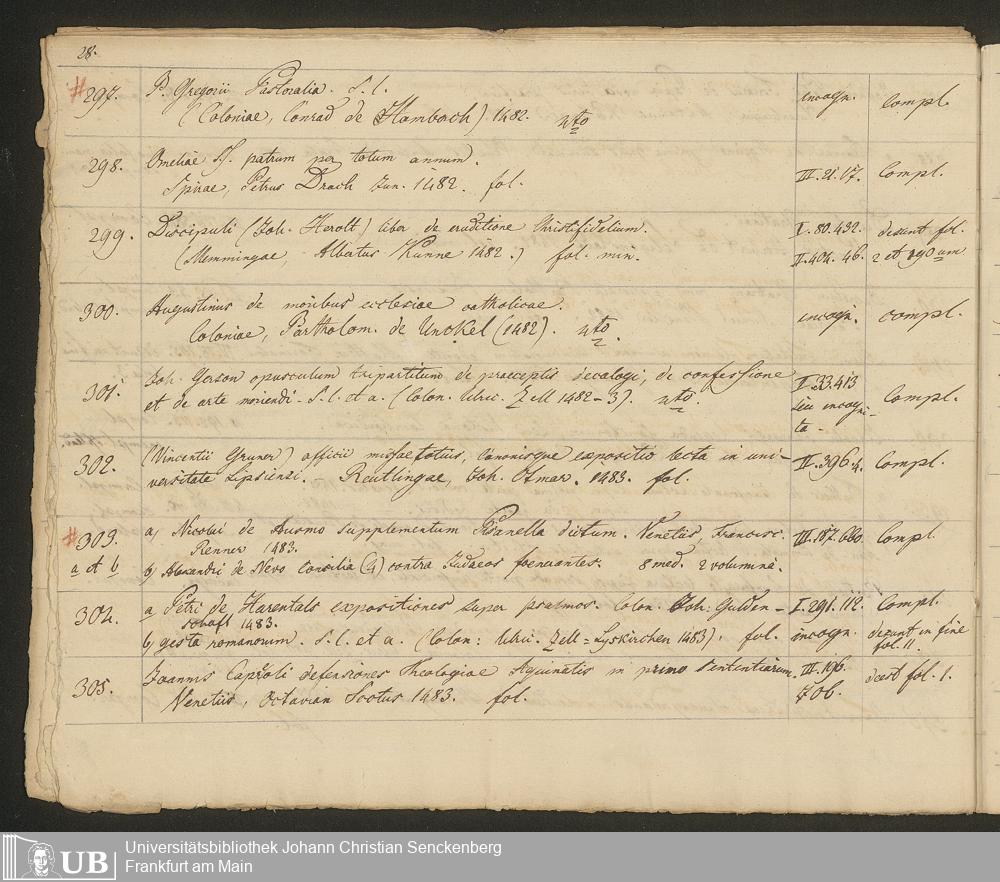 28.
#297. P. Gregorii Pastoralia. S. l. incogn. Compl.
(Coloniae, Conrad de Homborch) 1482. 4to
298. Omeliae SS. patrum per totum annum.
Spirae, Petrus Drach Jun. 1482. fol. III. 21. 17. Compl.
299. Discipuli (Joh. Herolt) liber de eruditione Christifidelium. I. 80. 432. desunt fol.
(Memmingae, Albertus Kunne 1482.) fol. min. II. 404. 46. 2 et 190um
300. Augustinus de moribus ecclesiae catholicae. incogn. compl.
Coloniae, Bartholom. de Unckel (1482). 4to.
301. Joh. Gerson opusculum tripartitum de praeceptis decalogi, de confessione II. 33. 413
et de arte moriendi. S. l. et a. (Colon. Ulric. Zell 1482-3). 4to. seu incogni- Compl.
ta.
302. (Vincentii Gruner) officii missae totius, canonisque expositio lecta in uni- II. 396. 4. Compl.
versitate Lipsiensi. Reutlingae, Joh. Otmar. 1483. fol.
#303. a) Nicolai de Ausmo supplementum Pisanella dictum. Venetiis, Francisc. III. 187. 680. Compl.
Renner 1483.
a et b b) Alexandri de Nevo Consilia (4) contra Judaeos foenerantes. 8 med. 2 volumina.
304. a Petri de Harentals expositiones super psalmos. Colon. Joh: Gulden- I. 291. 112. Compl.
schaff 1483.
b) gesta romanorum. S. l. et a. (Colon: Ulric. Zell-Lyskirchen 1483). fol. incogn. desunt in fine
fol. 11.
305. Joannis Capreoli defensiones Theologiae Aquinatis in primo Sententiarum. III. 196. deest fol. 1.
Venetiis, Octavian Scotus 1483. fol. 706.
UB
Universitätsbibliothek Johann Christian Senckenberg
Frankfurt am Main